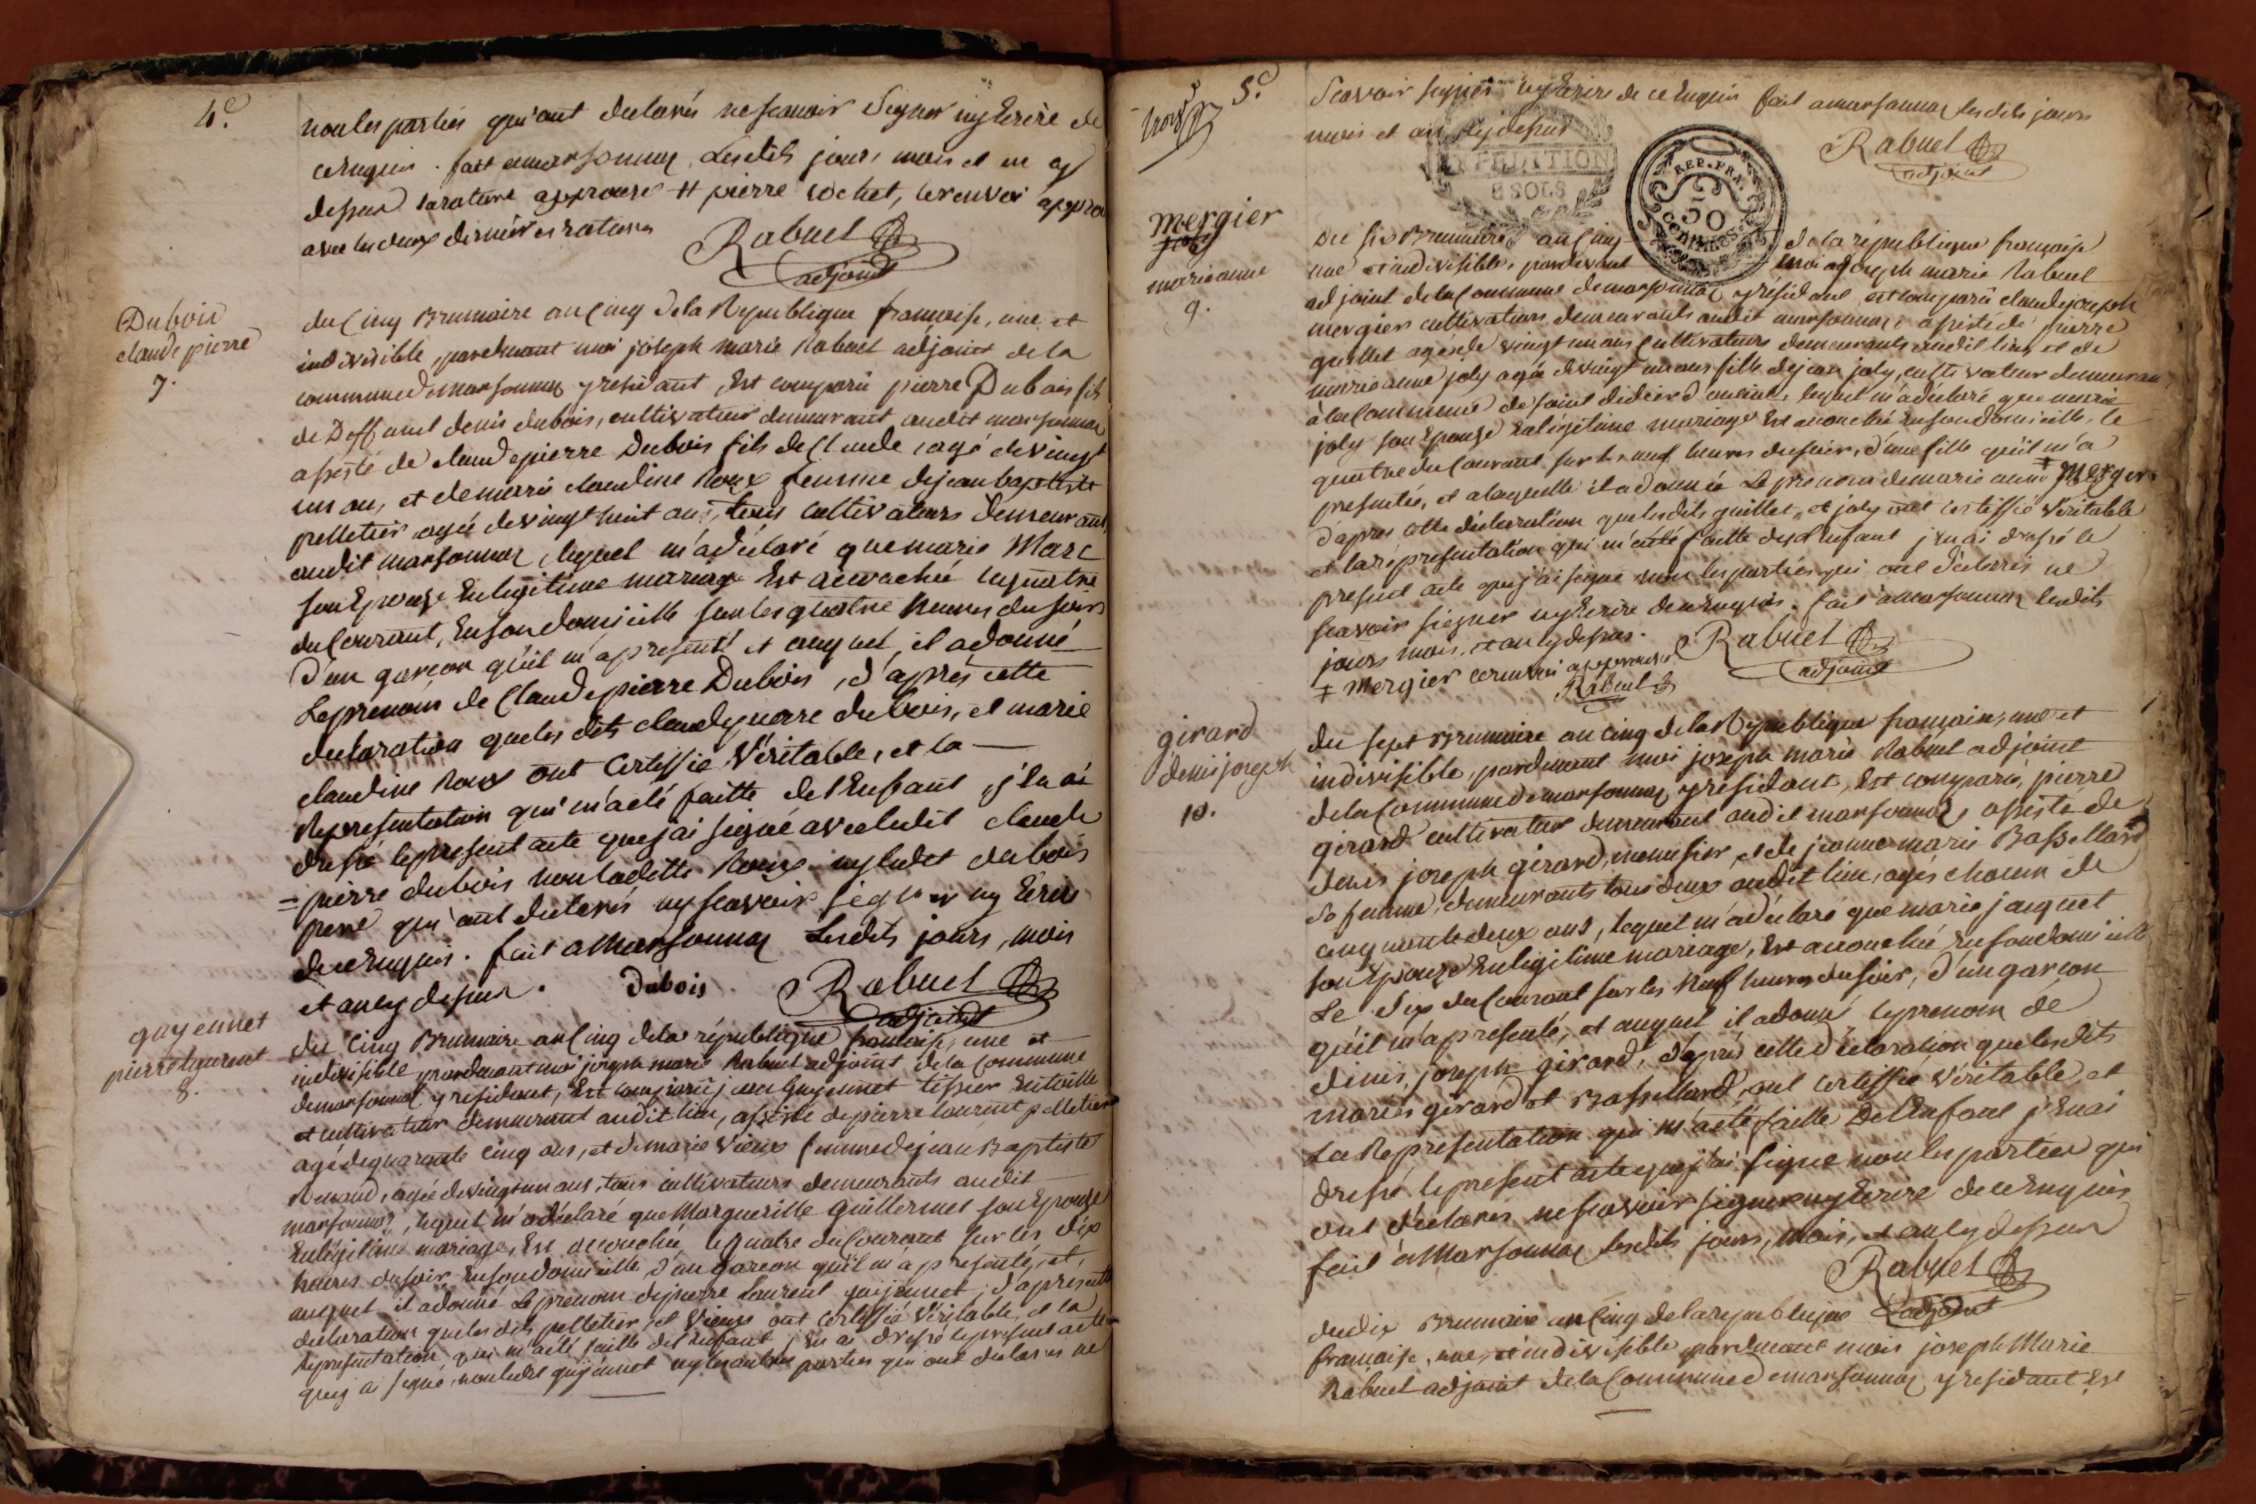 4e.
non les parties qu'ont declarés ne scavoir Signer ny Ecrire de
ce Enquis. fait a marsonnay Lesdits jours mois et an cy
dessus la rature approuvé # pierre Rochet, le renvoi appro
avec les deux dernières ratures
Rabuel
adjoint
Dubois
claude pierre
7.
du Cinq Brumaire an Cinq dela Republique francaise, une et
indivisible, pardevant moi joseph marie Rabuel adjoint de la
commune de marsonnay y residant, Est comparu pierre Dubois fils
de Deffunt denis dubois, cultivateur demeurant audit marsonnay
assisté de claude pierre Dubois fils de Claude, agé de vingt
un an, et de marie claudine Roux femme de jean baptiste
pelletier agée de vingt huit ans, tous Cultivateurs demeurants
audit marsonnay, lequel m'a déclaré que marie Marc
son Epouse En legitime mariage Est accouchée le quatre
du Courant, En son domicille sur les quatre heures du soir
D'un garçon qu'il m'a presenté et auquel, il a donné
Le prenom de Claude pierre Dubois, d'après cette
declaration que les dits claude pierre dubois, et marie
claudine Roux ont Certiffié Véritable, et la —
Representation qui m'a eté faitte de l'Enfant, j'En ai
dressé le present acte que j'ai signé avec ledit claude
= pierre dubois non ladette Roux ny ledit dubois
pere qui ont declarés ny scavoir signer ny Ecrire
de ce Enquis. fait a Marsonnay Lesdits jours, mois
et an cy dessus.
Dubois
Rabuel
adjoint
guyennet
pierre laurent
8.
du Cinq Brumaire an Cinq dela république francaise, une et
indivisible pardevant moi joseph marie Rabuel adjoint de la Commune
de marsonnay y residant, Est comparu jean Guyennet tissier En toille
et cultivateur demeurant audit lieu, assisté de pierre laurent pelletier
agé de quarante cinq ans, et de marie Vieux femme de jean Baptiste
Renaud, agée de vingt un ans, tous cultivateurs demeurants audit
marsonnay, lequel m'a déclaré que Marguerille Guillermet son Epouse
En légitime mariage, Est accouchée le quatre du Courant sur les dix
heures du soir En son domicille, d'un garcon qu'il m'a presenté, et,
auquel il a donné Le prenom de pierre Laurent guyennet, d'apres cette
declaration que les dits pelletier, et Vieux ont Certiffié Véritable, et la
Representation qui m'a eté faitte de l'Enfant j'En ai dressé le present acte
que j'ai signé, non ledit guyennet ny les autres parties qui ont declarés ne
5e.
Scavoir signer ny Ecrire de ce Enquis fait a marsonnay lesdits jours
mois et an cy dessus
Rabuel
adjoint
EXPEDITION
8 SOLS
REP. FRA.
50
CENTIMES
mergier
marie anne
9.
Du six Brumaire an Cinq de la république française
une et indivisible, pardevant moi joseph marie Rabuel
adjoint de la Commune de marsonnay y résidant est comparu claude joseph
mergier cultivateur demeurants audit marsonnay assisté de pierre
guillet agé de vingt un ans Cultivateur demeurants audit lieu et de
marie anne joly agée de vingt un ans fille de jean joly, cultivateur demeurant
à la Commune de saint didier d'aussiat, lequel m'a déclaré que marie
joly son Epouse En légitime mariage Est accouchée En son domicille, le
quatre du Courant sur les neuf heures du soir, d'une fille qu'il m'a
presentée, et a laquelle il a donnée Le prenom de marie anne ‡ Merger
d'apres cette déclaration que lesdits guillet, et joly ont certiffié Véritable
et la représentation qui m'a eté faitte de l'Enfant j'En ai dressé le
present acte que j'ai signé non les parties qui ont déclarés ne
scavoir signer ny Ecrire de ce Enquis. fait a marsonnay lesdits
jours mois, et an cy dessus.
‡ Mergier ce renvoi approuvé
Rabuel
Rabuel
adjoint
girard
denis joseph
10.
du sept Brumaire an Cinq de la République française, une et
indivisible, pardevant moi joseph marie Rabuel adjoint
de la Commune de marsonnay y résidant, Est comparu, pierre
girard cultivateur demeurant audit marsonnay, assisté de
denis joseph girard, menusier, et de jeanne marie Bassellard
sa femme, demeurants tous deux audit lieu, agés chacun de
cinquante deux ans, lequel m'a déclaré que marie jacquet
son Epouze En légitime mariage, Est accouchée En son domicille
Le Six du Courant sur les Neuf heures du soir, d'un garçon
qu'il m'a presenté, et auquel il a donné le prenom de
denis joseph girard, d'après cette Déclaration que lesdits
mariés girard et Bassellard ont certiffié Véritable, et
La Representation qui m'a eté faitte De l'Enfant j'En ai
dressé le present acte que j'ai signé non les parties qui
ont déclarés ne scavoir signer ny Ecrire de ce Enquis
fait à Marsonnay lesdits jours, Mois, et an cy dessus
Rabuel
adjoint
du dix Brumaire an Cinq de la republique
francaise, une, et indivisible pardevant moi joseph Marie
Rabuel adjoint de la Commune de marsonnay y residant Est